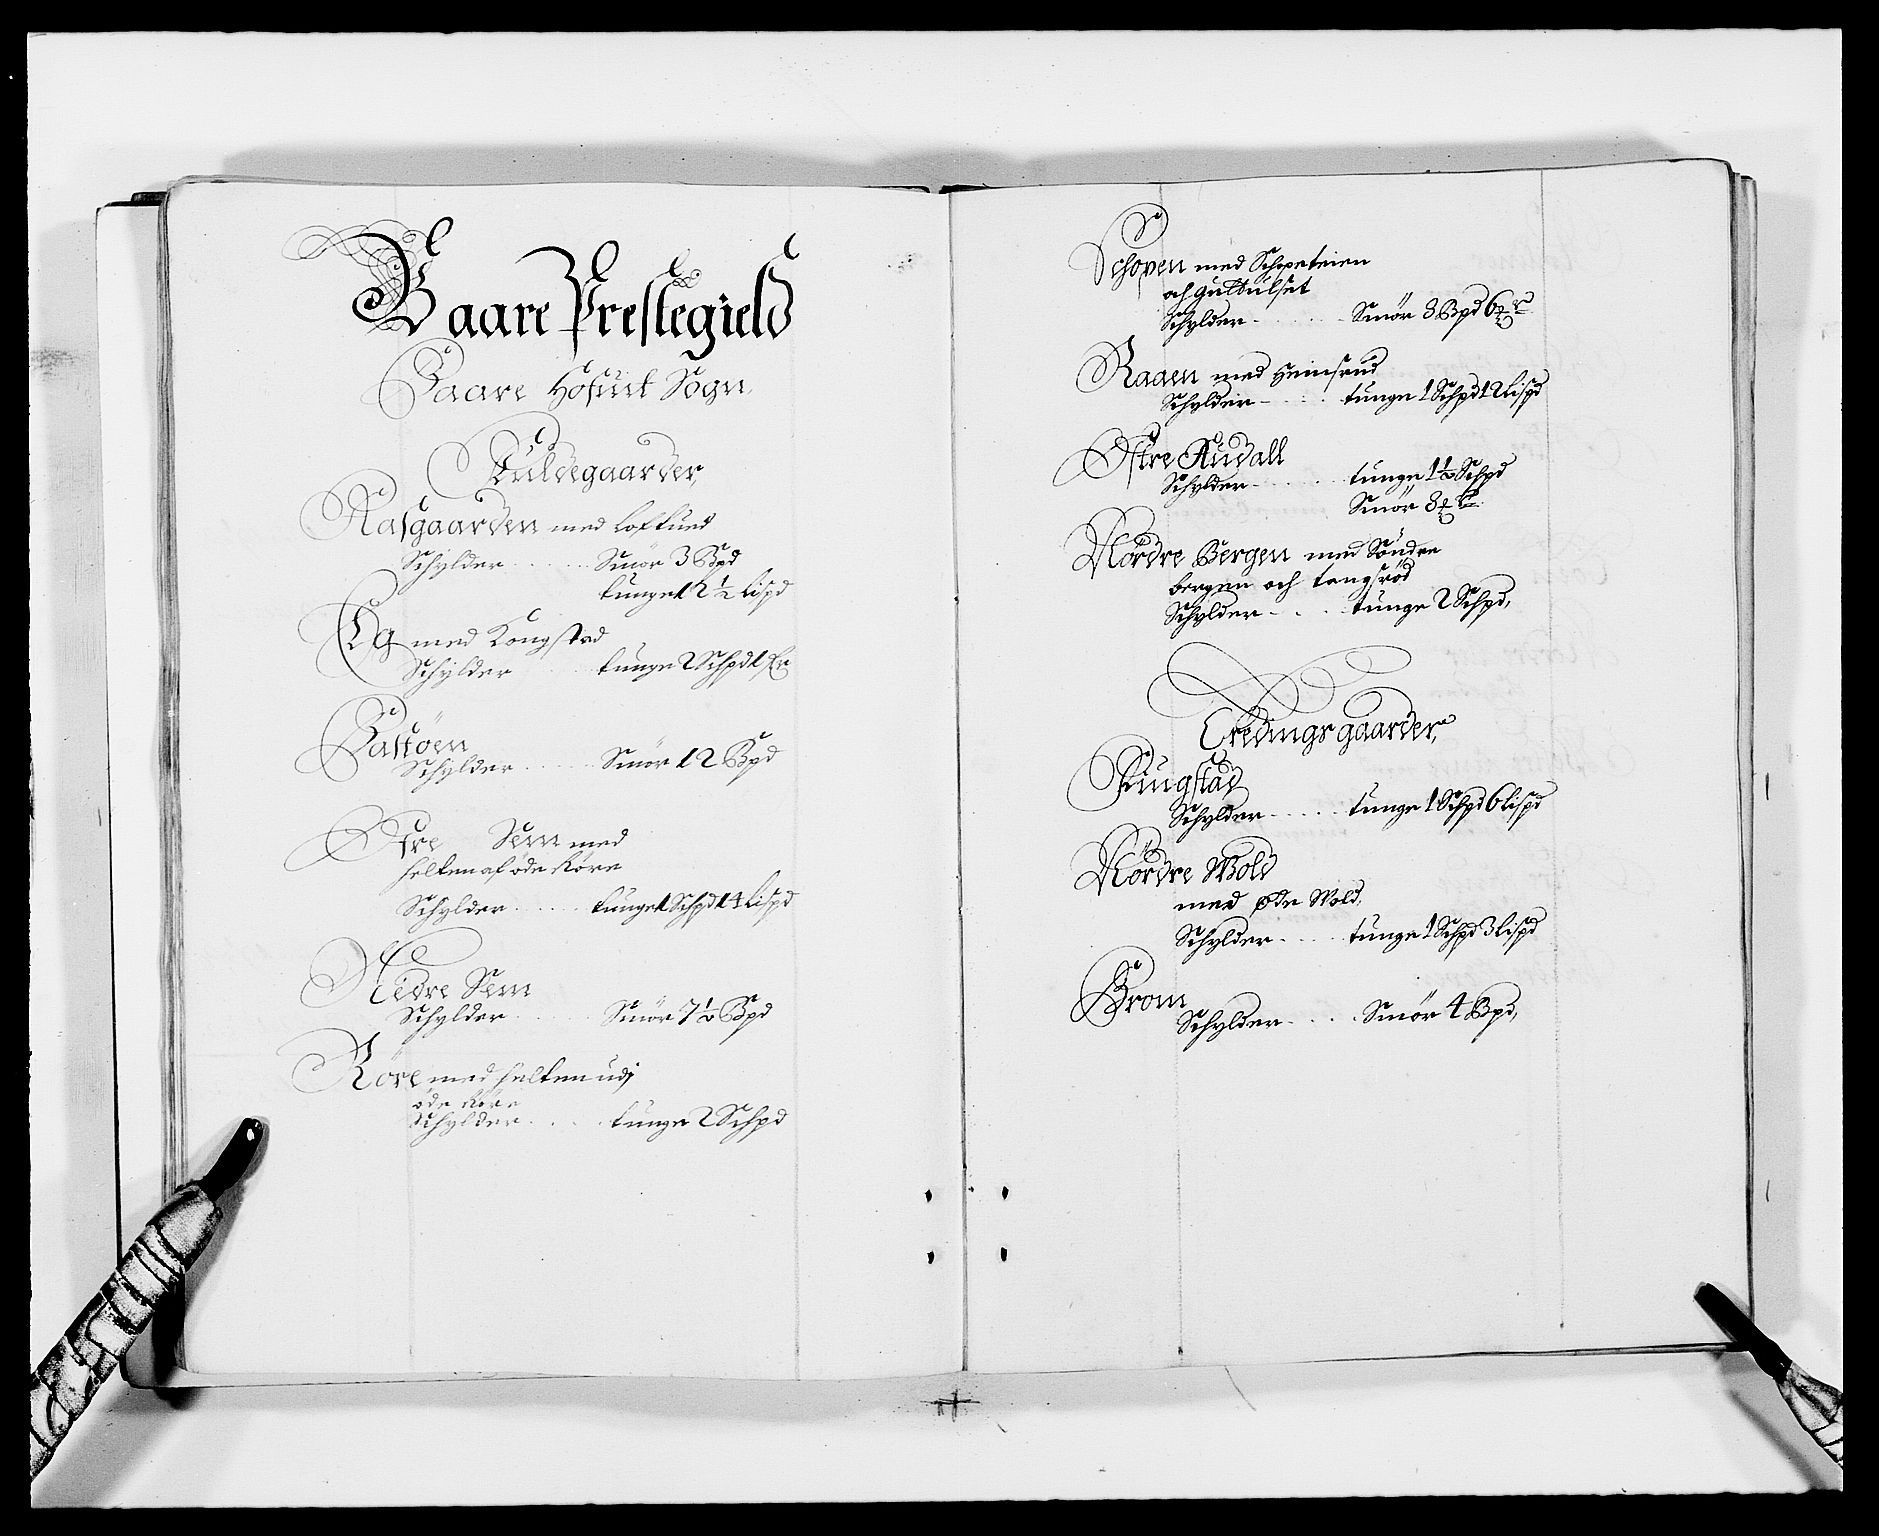 Baare Prestegield
Baare Hofuit Sogn
Fuldegaarder,
Rasgaarden med Loftued
Schylder . . . . . . Smör 3 Bpd
tunge 12 ½ Lispd
Eg med Kongstad
Schylder . . . . tunge 2 Schpd 1 fr
Bastöen
Schylder . . . . . . Smör 12 Bpd
Ostre Sem med
helten af öde Röre
Schylder . . . . . tunge 1 Schpd 14 Lispd
Nedre Sem
Schylder . . . . . Smör 7 ½ Bpd
Röre med helten udj
öde Röre
Schylder . . . . tunge 2 Schpd
Schopen med Schopeteien
och Guldulset
Schylder . . . . . Smör 3 Bpd 6
Raaen med Heimsrud
Schylder - . . . . tunge 1 Schpd 12 lispd
Ostre Audall
Schylder . . . . . tunge 1 ½ Schpd
Smör 8
Nördre Bergen med Söndre
bergen och Langsröd
Schylder - . . . tunge 2 Schpd,
Ödegaarder,
Fuugstad
Schylder . . . . . . tunge 1 Schpd 6 lispd
Nördre Wold
med Øde Wold,
Schylder . . . . . tunge 1 Schpd 3 lispd
Brom
Schylder . . . . . Smör 4 Bpd,